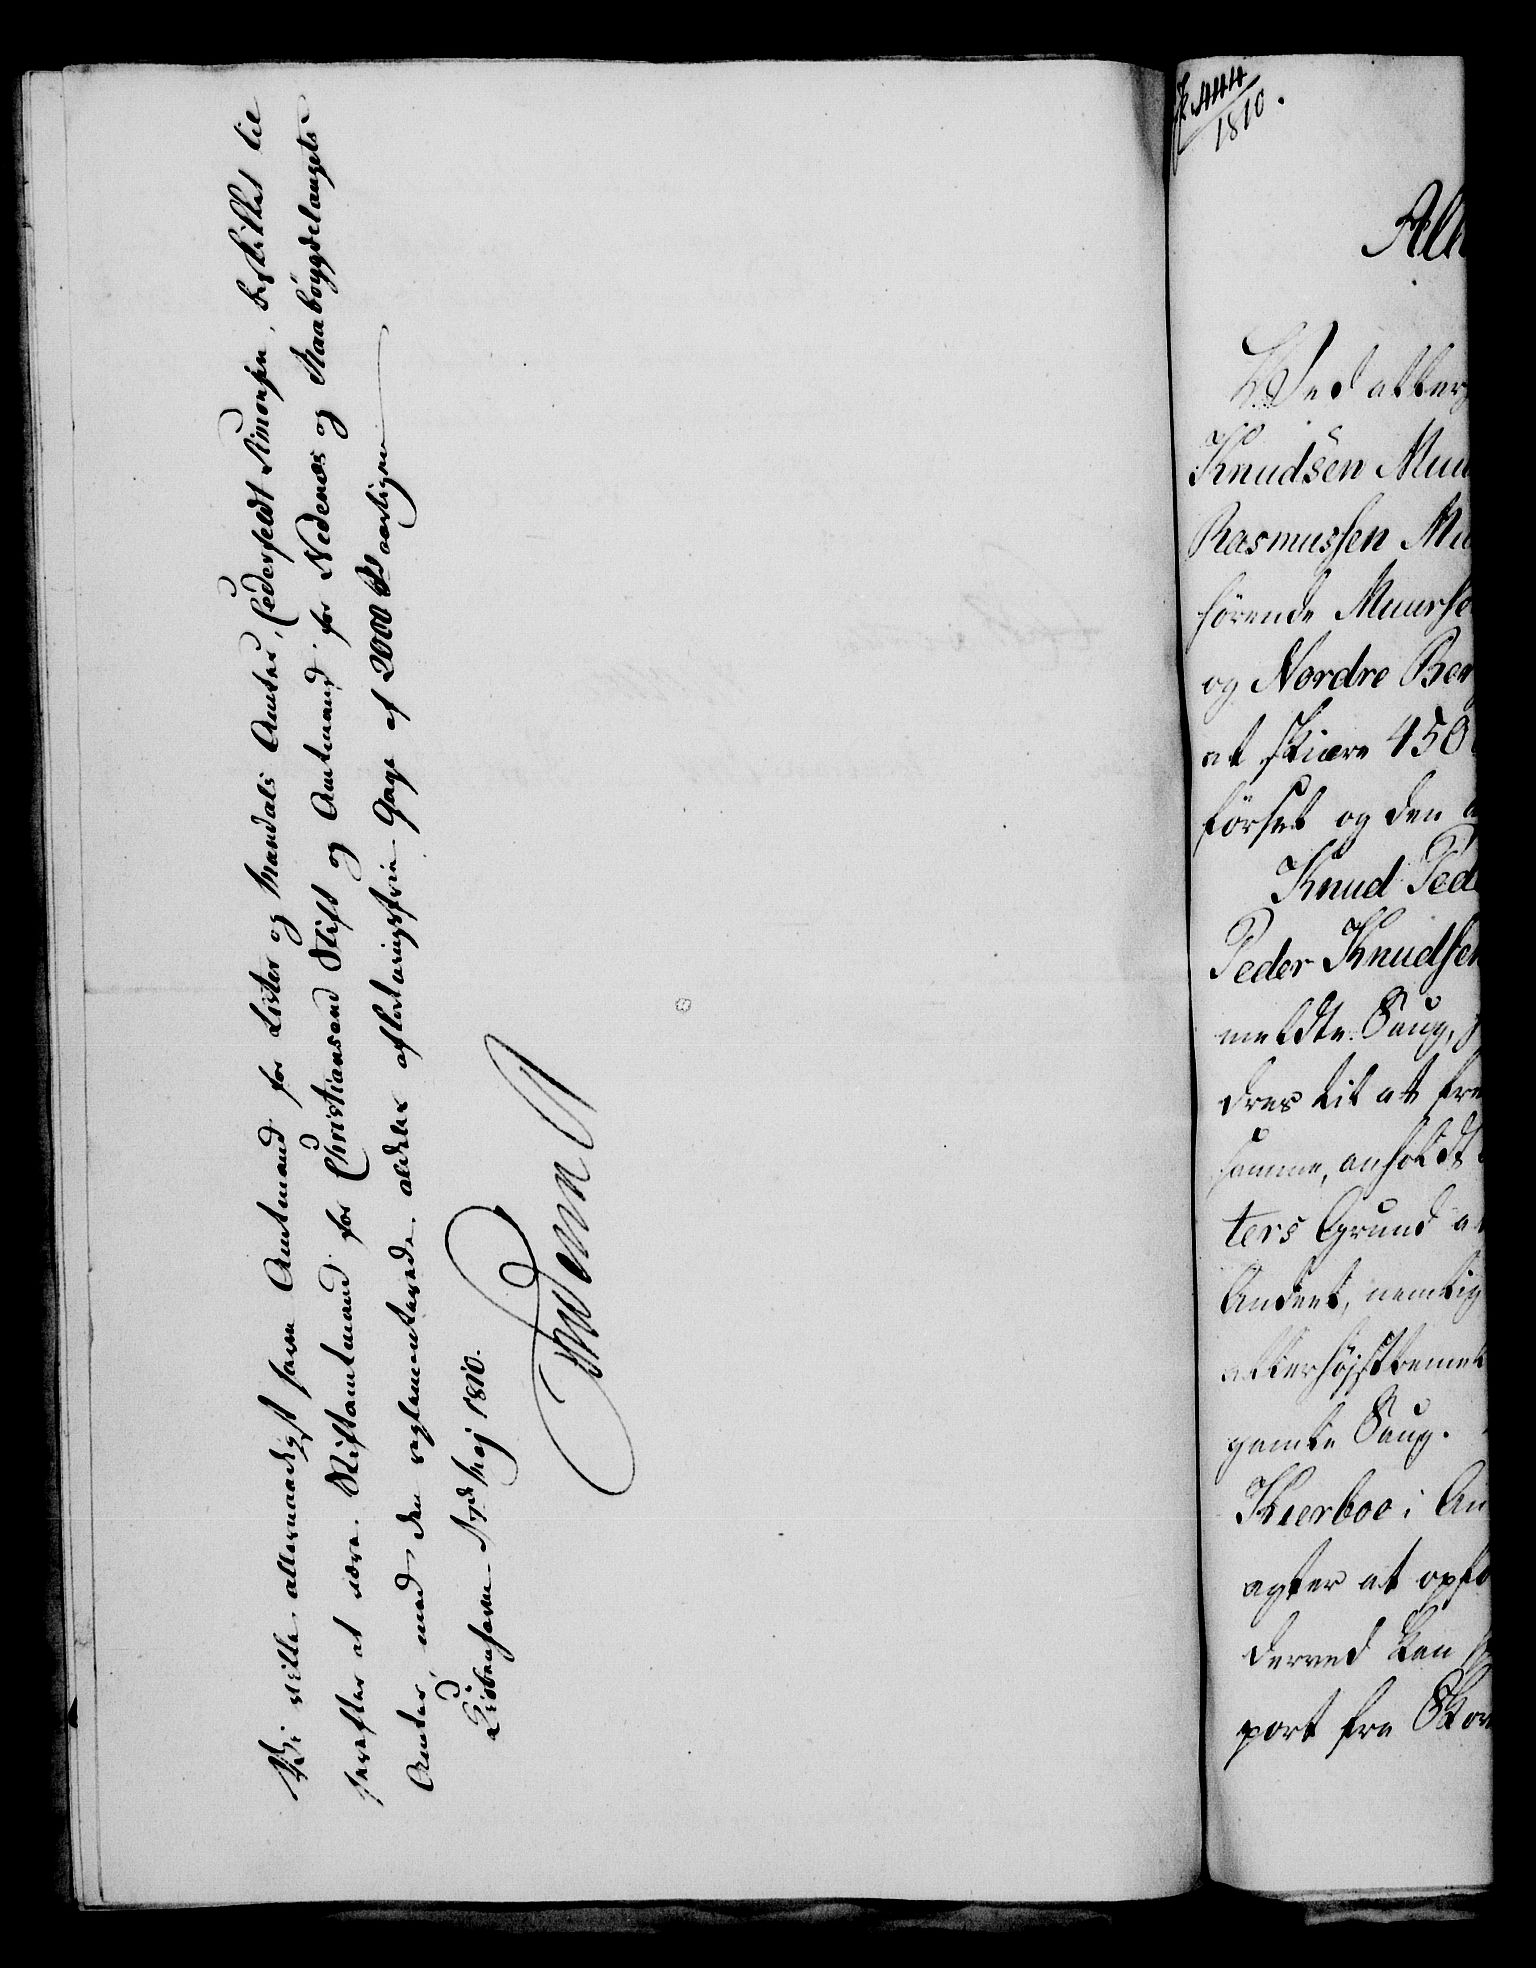 Vi ville allernaadigst have Amtmand for Lister og Mandals Amter, Cederfeldt Simonsen, beskikket til
herefter at være Stiftamtmand for Christiansand Stift og Amtmand for Nedenæs og Raabøygdelaugets
Amter, med den reglementerede aldeles afkortningsfrie Gage af 2000 Rd aarligen
Kiøbenhavn den Maj 1810.
444
1810.
All
Ved aller
Knudsen Muu
Rasmussen Mu
hørende Muurso
og Nordre Ber
at skiære 450
førset og den a
Knud Pede
Peder Knudsen
meldte Saug,
dres tit at fre
samme, anholdt
ters Grund a
Andeet, nemlig
allerhøjstbemel
gamle Saug.
Kierboe i An
agter at opfø
derved kan
port fra Skov